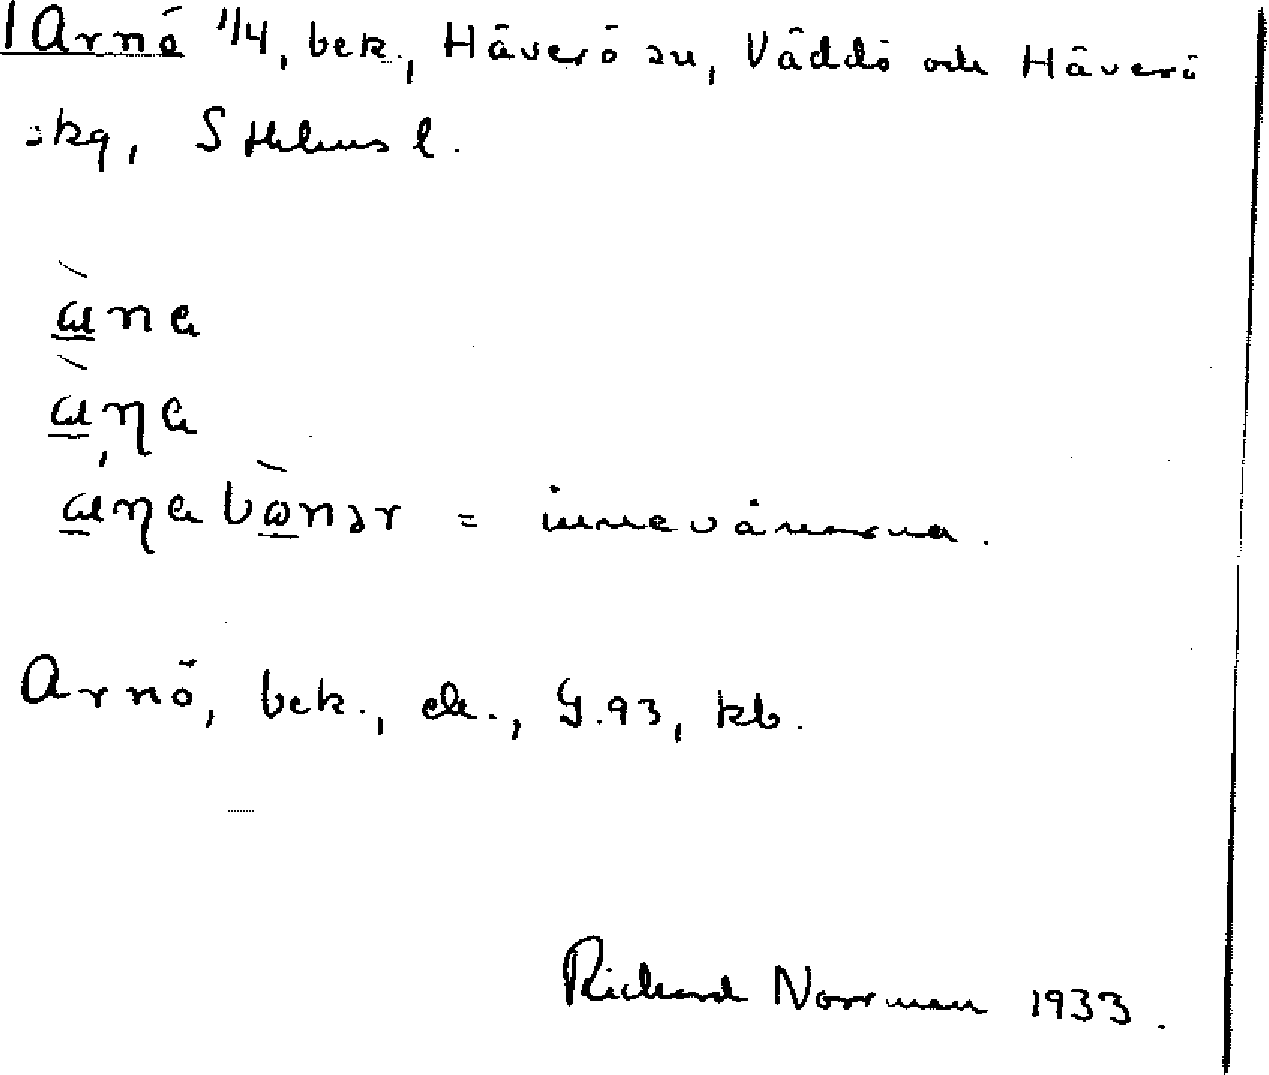 Arnö 1/4, bek., Häverö sn, Väddö och Häverö
skg, Sthlms l.
ɑ̀na
ɑ̀ŋa
ɑ́ŋabònər = innevånarna.
Arnö, bek., ek., G.93, kb.
Richard Norrman 1933.